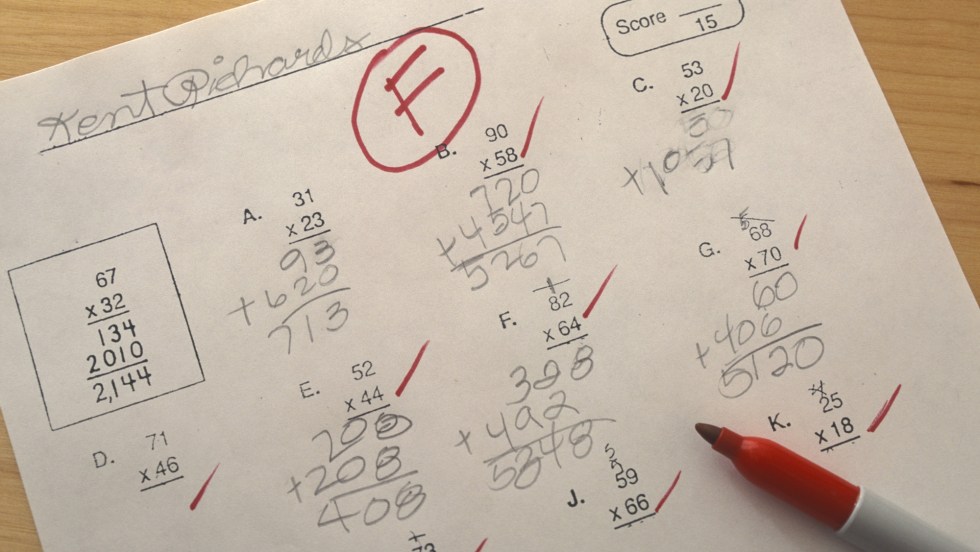 Kent Richards
F
Score
15
C. 53
x 20
53
B. 90
x 58
720
+ 4547
5267
A. 31
x 23
93
+ 620
713
67
x 32
134
2010
2,144
G. 68
x 70
60
+ 406
5120
F. 82
x 64
+ 492
5348
E. 52
x 44
208
+ 208
408
D. 71
x 46
K. 25
x 18
J. 59
x 66